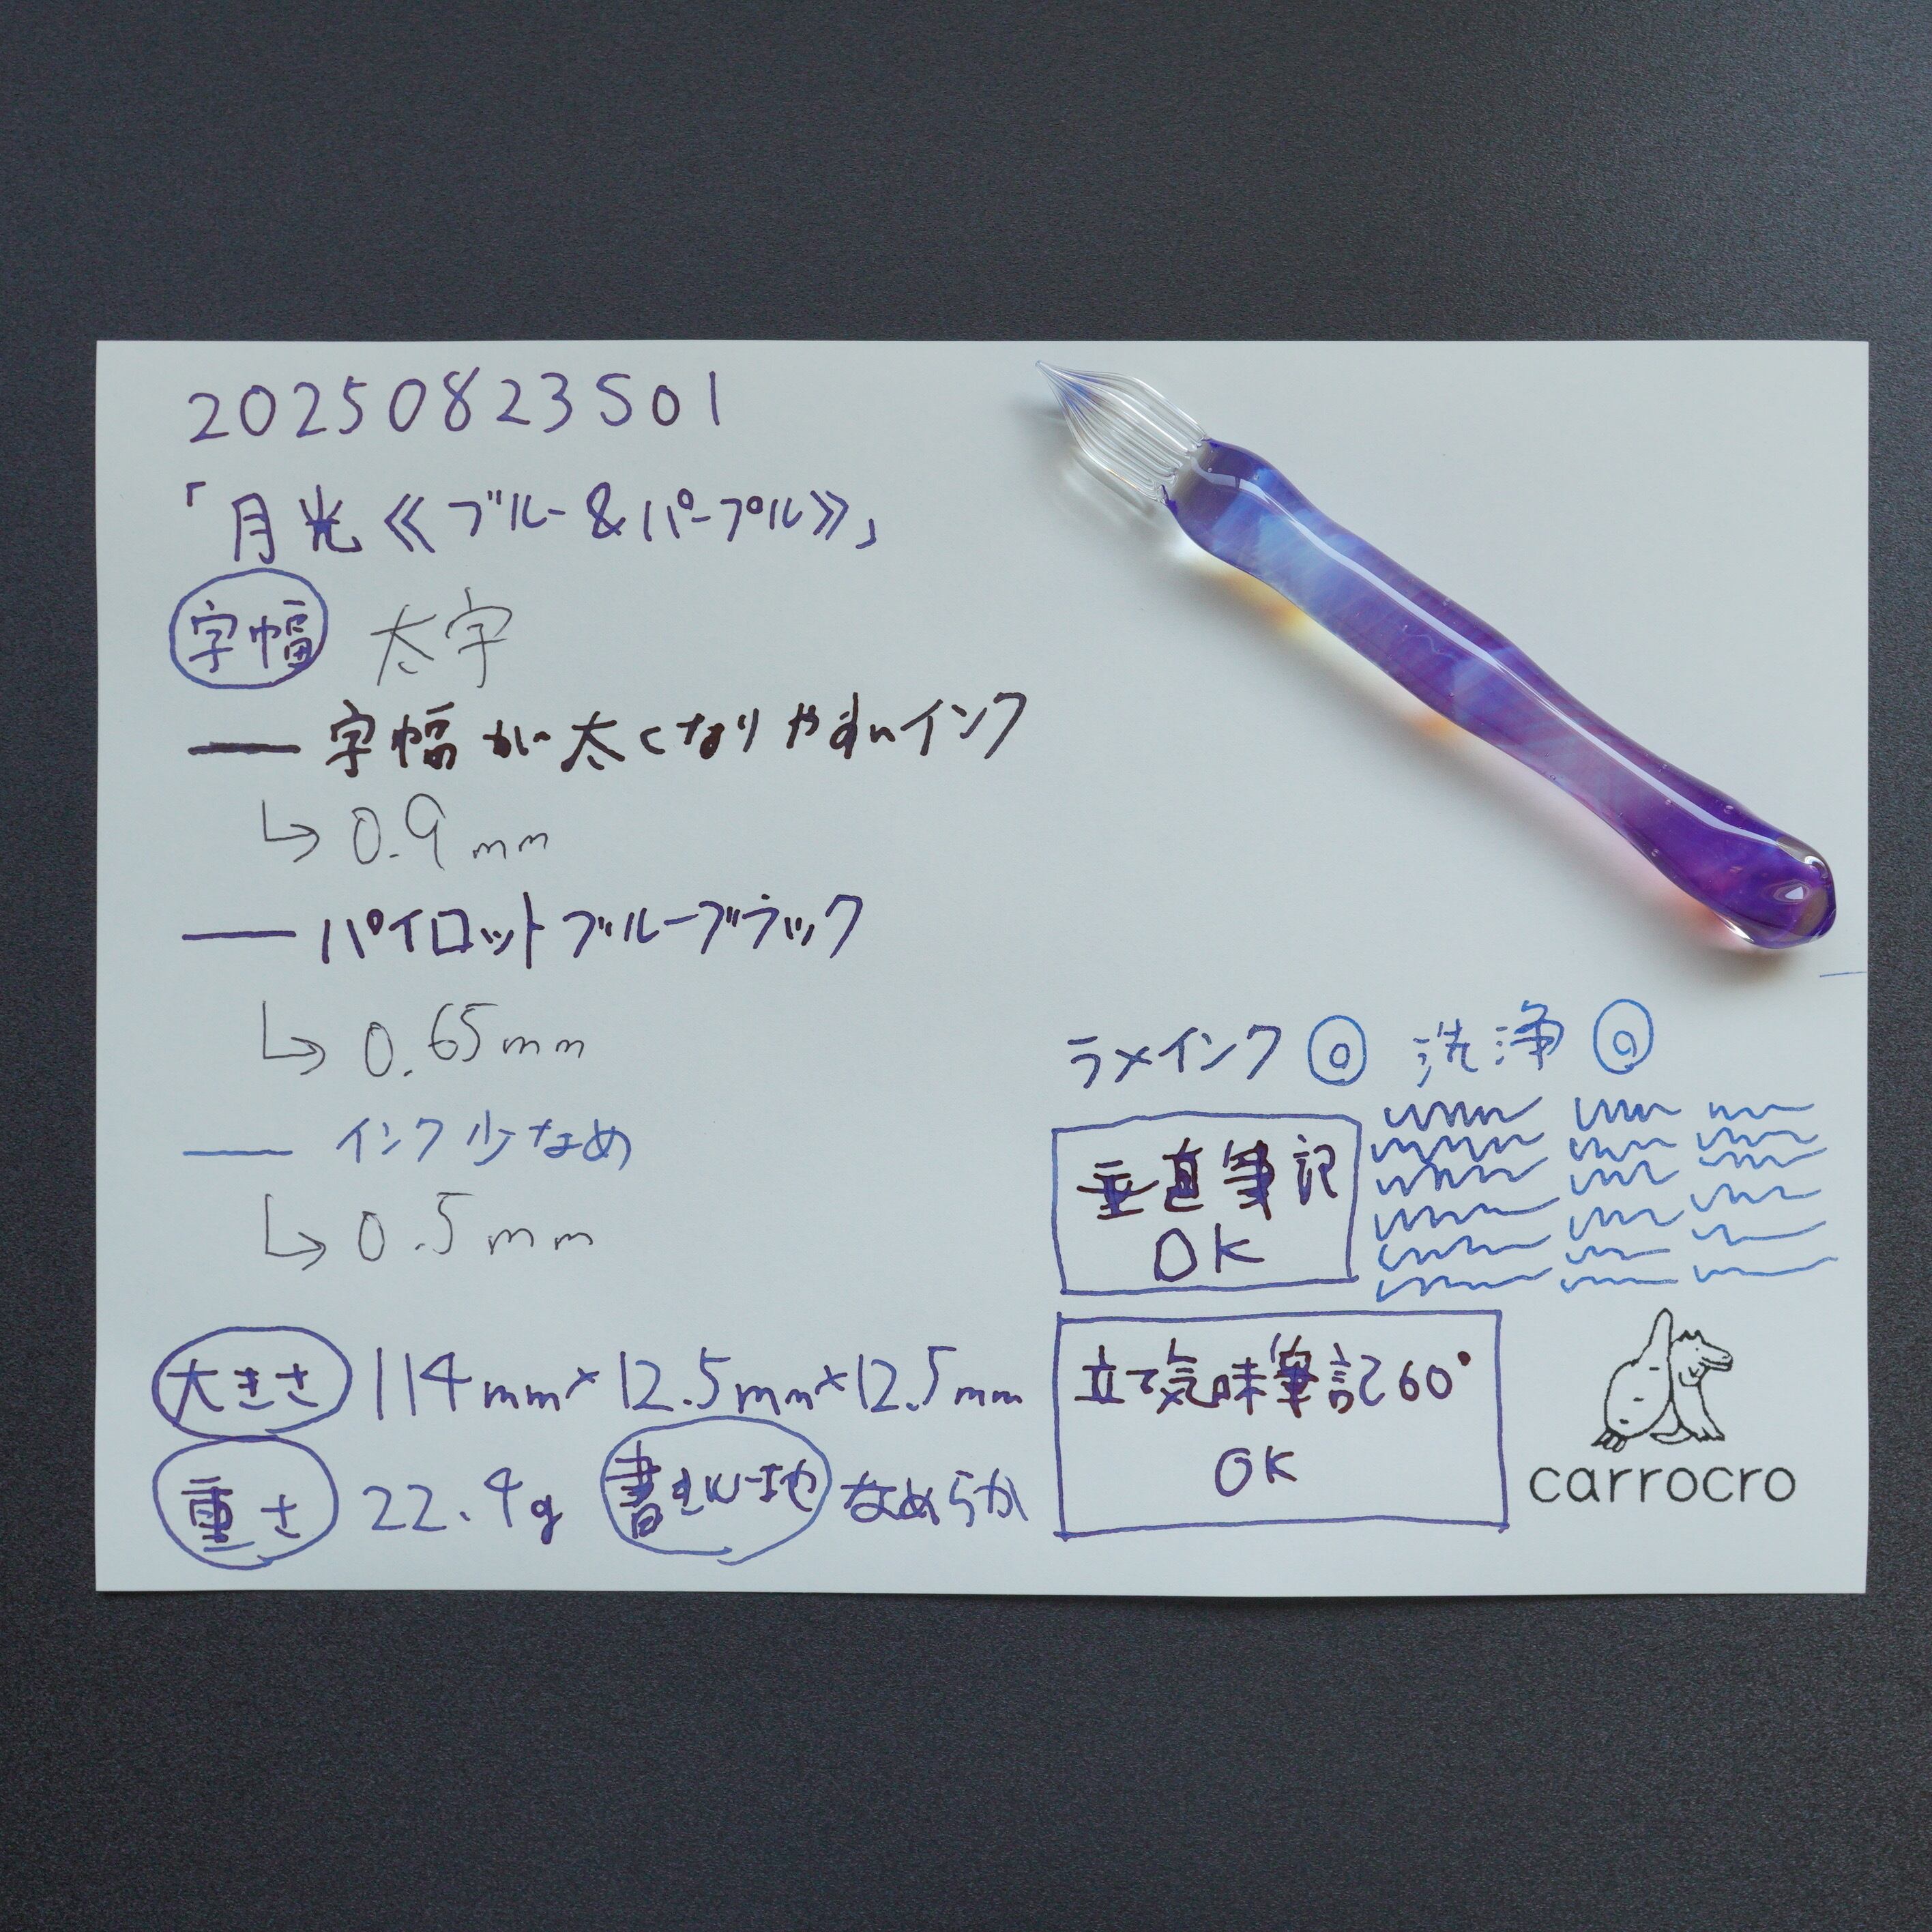 20250823S01
「月光《ブルー&パープル》」
字幅 太字
字幅が太くなりやすいインク
↳0.9mm
パイロットブルーブラック
↳0.65mm
インク少なめ
↳0.5mm
大きさ 114mm×12.5mm×12.5mm
重さ 22.4g 書き心地 なめらか
ラメインク◎ 洗浄◎
垂直筆記
OK
立て気味筆記60°
OK
carrocro